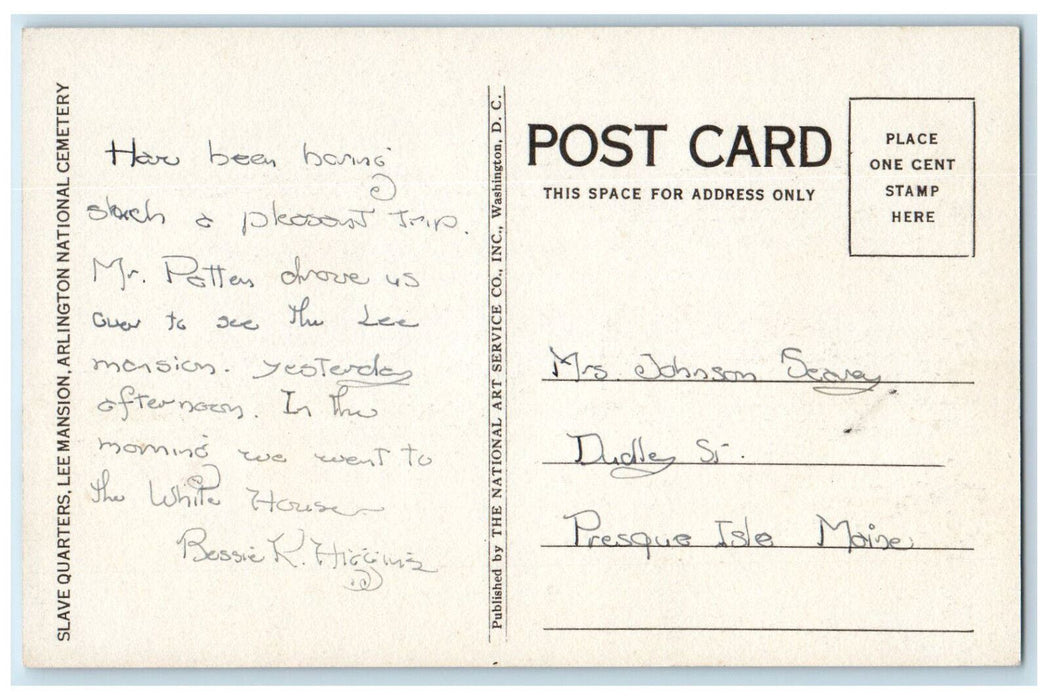 SLAVE QUARTERS, LEE MANSION, ARLINGTON NATIONAL CEMETERY
Have been having
such a pleasant trip.
Mr. Patten drove us
over to see the Lee
mansion. yesterday
afternoon. In the
morning we went to
the White House
Bessie K. Higgins
Published by THE NATIONAL ART SERVICE CO., INC., Washington, D. C.
POST CARD
THIS SPACE FOR ADDRESS ONLY
PLACE
ONE CENT
STAMP
HERE
Mrs. Johnson Seavey
Dudley St.
Presque Isle Maine